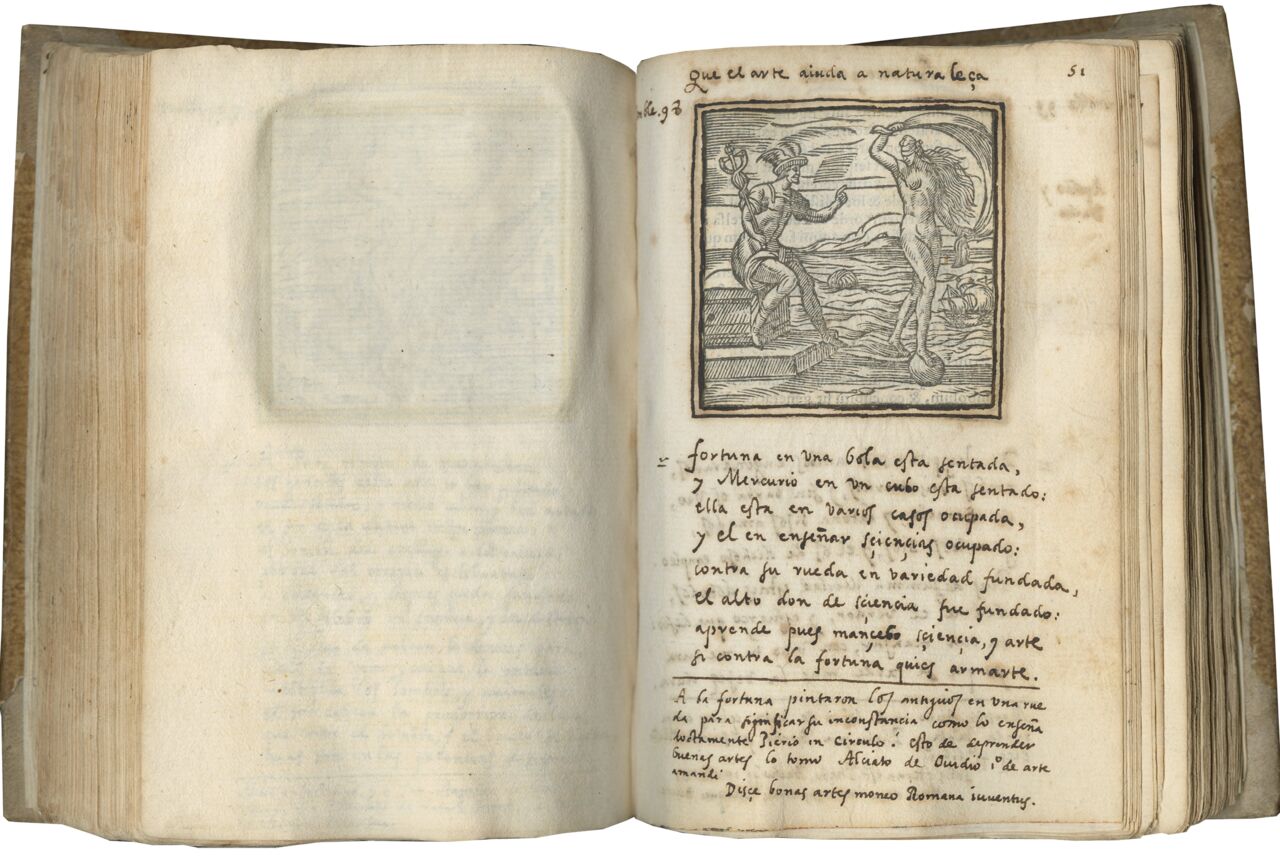 Que el arte aiuda a naturaleça
51
fortuna en una bola esta sentada,
y Mercurio en un cubo esta sentado:
ella esta en varios casos ocupada,
y el en enseñar sçiençias ocupado:
contra su rueda en variedad fundada,
el alto don de sciencia fue fundado:
aprende pues mançebo sçiençia, y arte
si contra la fortuna quies armarte.
A la fortuna pintaron los antiguos en una rue
da para significar su inconstancia como lo enseña
doctamente Pierio in circulo: esto de deprender
buenas artes lo tomo Alciato de Ovidio 1º de arte
amandi
Disçe bonas artes moneo Romana iuventus.